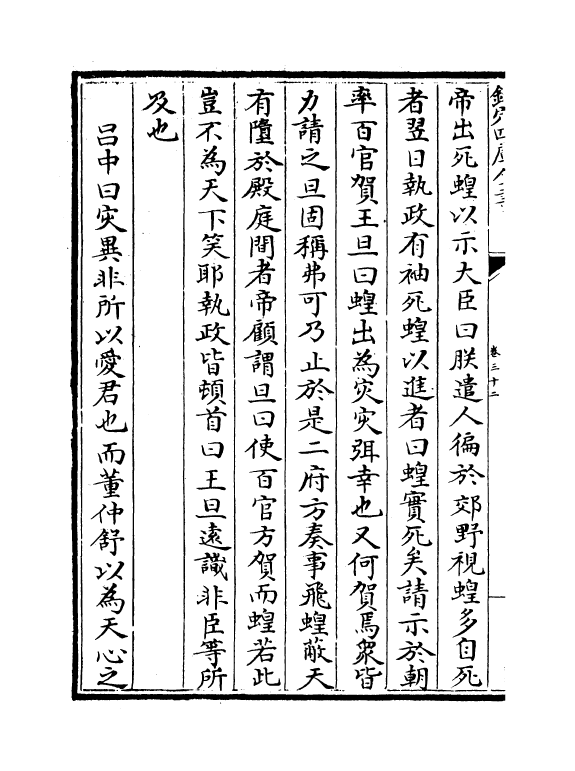 欽定四庫全書
卷三十二
帝出死蝗以示大臣曰朕遣人徧於郊野視蝗多自死
者翌日執政有袖死蝗以進者曰蝗實死矣請示於朝
率百官賀王旦曰蝗出為災災弭幸也又何賀焉衆皆
力請之旦固稱弗可乃止於是二府方奏事飛蝗蔽天
有墮於殿庭間者帝顧謂旦曰使百官方賀而蝗若此
豈不為天下笑耶執政皆頓首曰王旦遠識非臣等所
及也
呂中曰災異非所以愛君也而董仲舒以為天心之